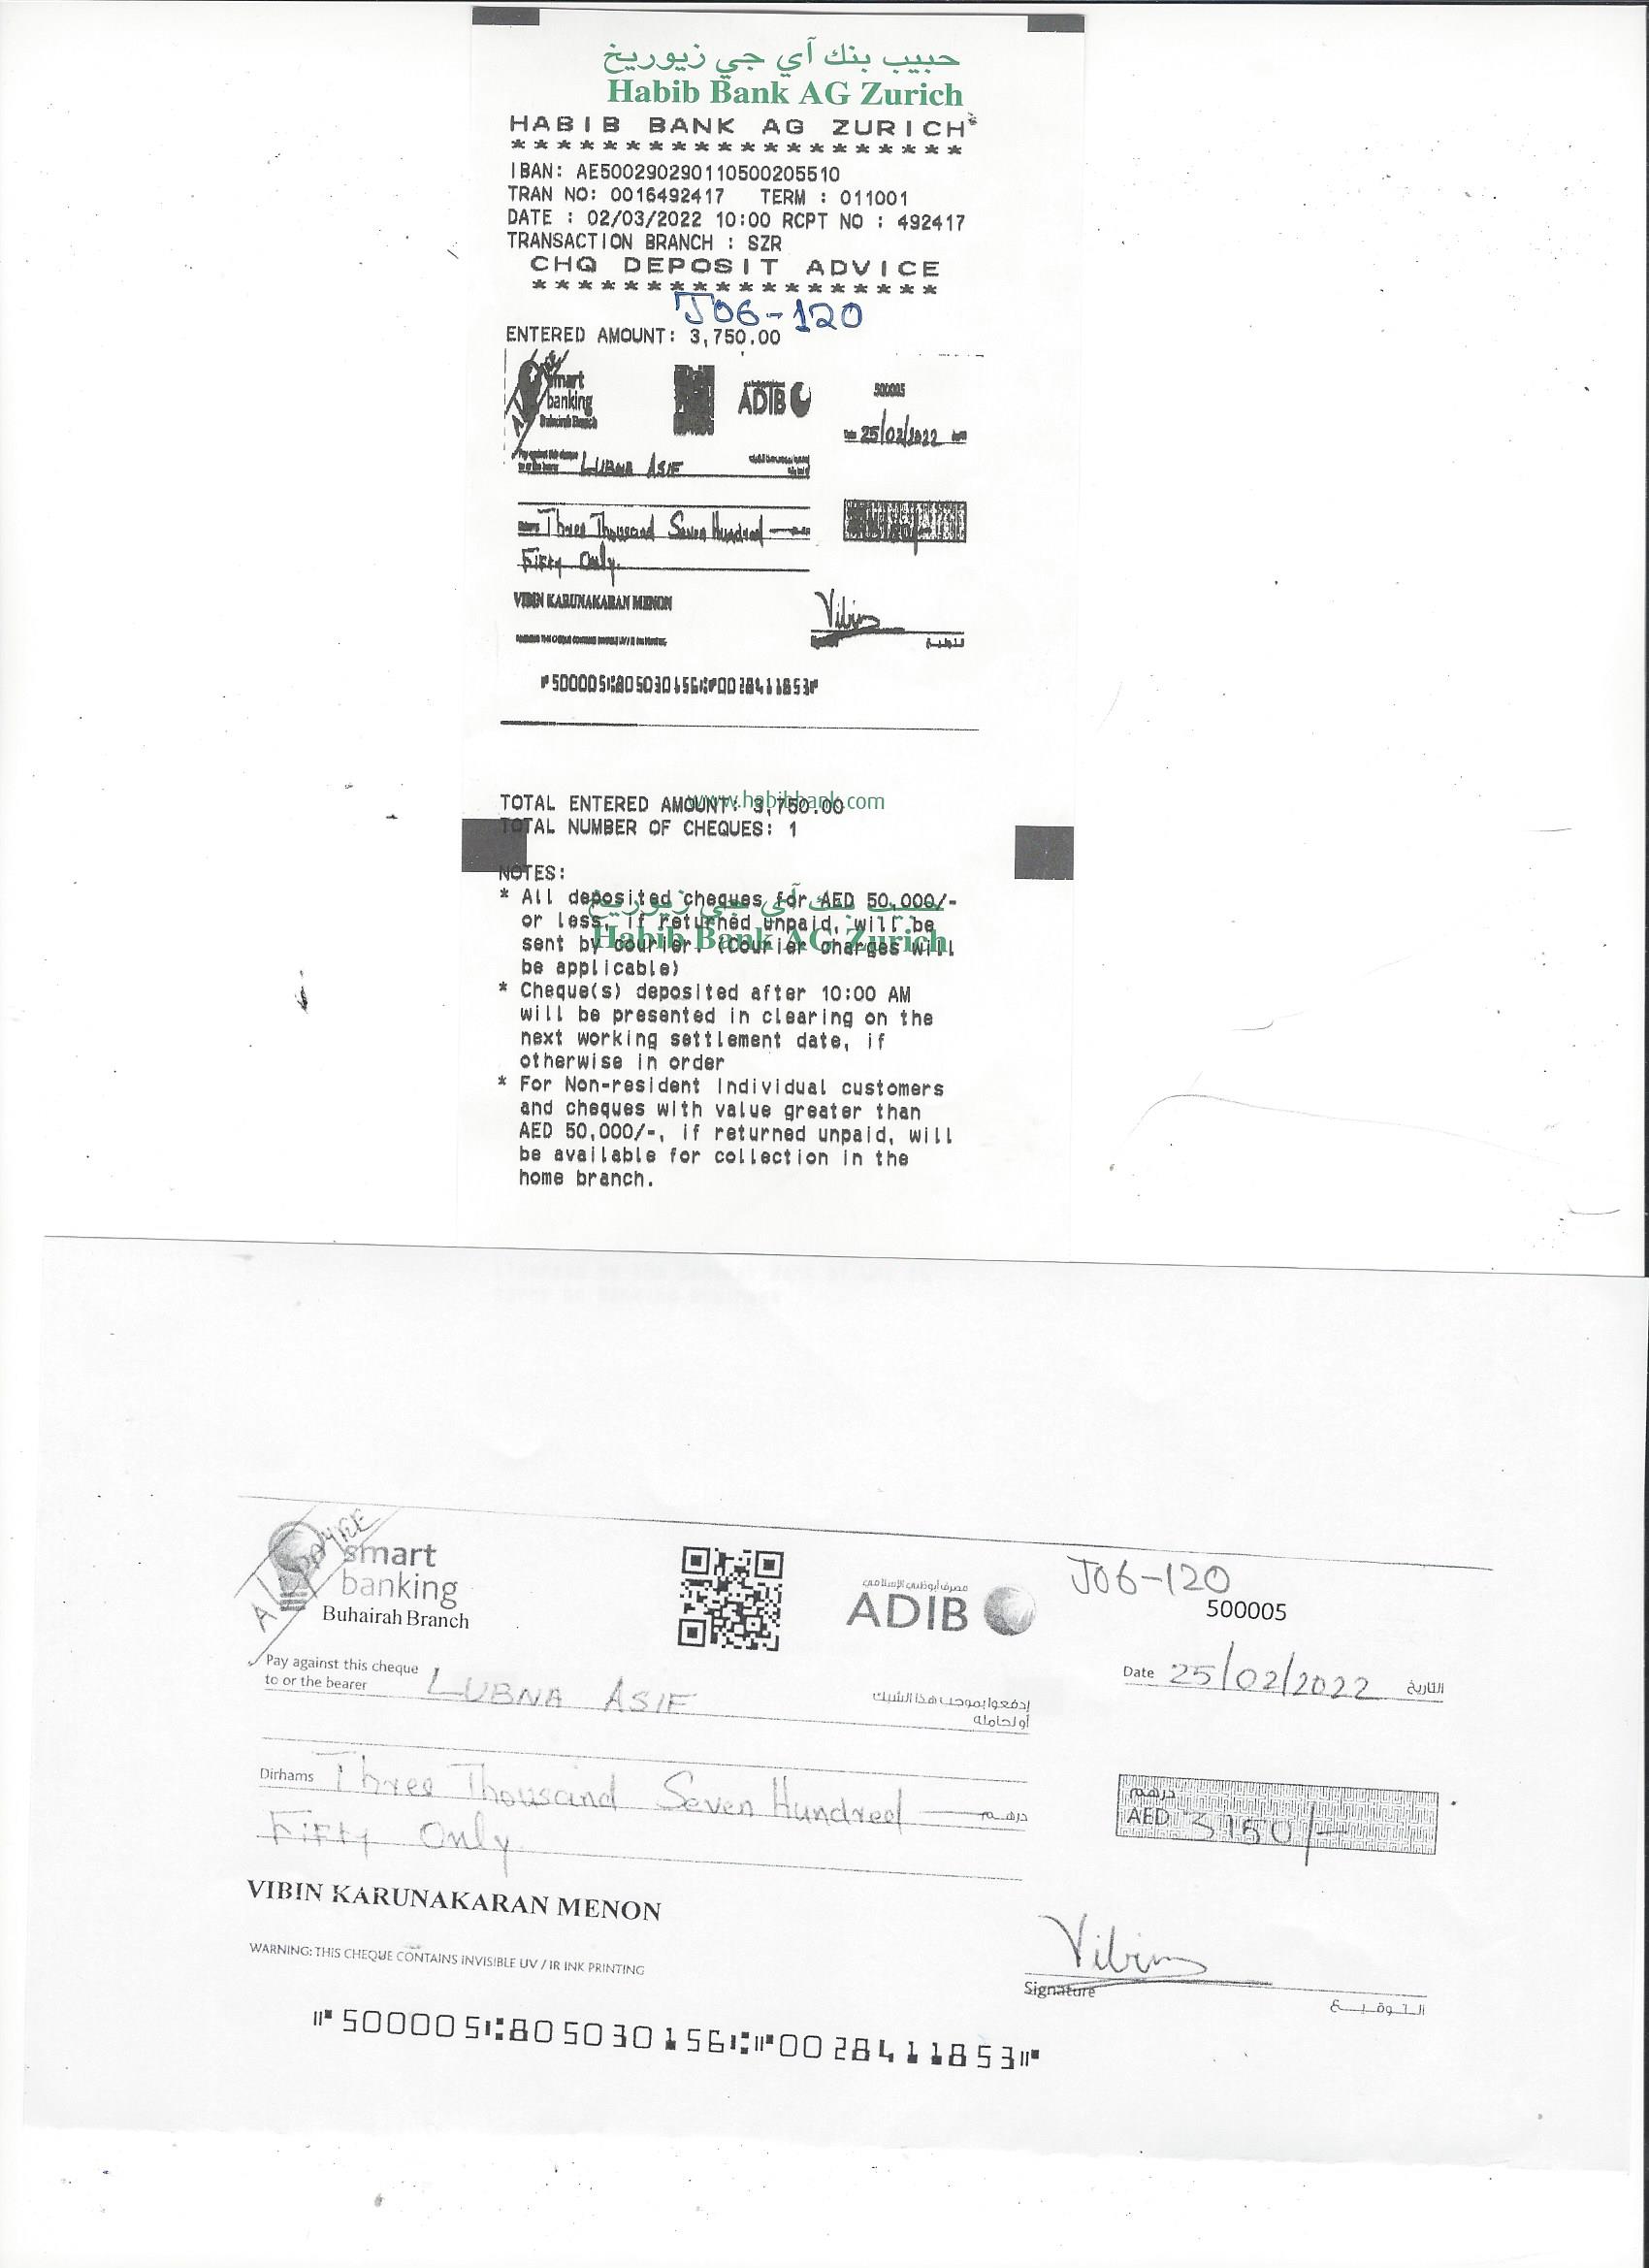 حبيب بنك آي جي زيوريخ
Habib Bank AG Zurich
HABIB BANK AG ZURICH
* * * * * * * * * * * * * * * * * * * *
IBAN: AE500290290110500205510
TRAN NO: 0016492417 TERM : 011001
DATE : 02/03/2022 10:00 RCPT NO : 492417
TRANSACTION BRANCH : SZR
CHQ DEPOSIT ADVICE
* * * * * * * * * * * * * * * * * *
J06-120
ENTERED AMOUNT: 3,750.00
smart
banking
Buhairah Branch
ADIB
500005
Date 25/02/2022
Pay against this cheque
to or the bearer LUBNA ASIF
Dirhams Three Thousand Seven Hundred
Fifty Only.
VIBIN KARUNAKARAN MENON
Vibin
WARNING: THIS CHEQUE CONTAINS INVISIBLE UV / IR INK PRINTING
التوقيع
⑈500005⑆805030156⑆⑈0028411853⑈
www.habibbank.com
TOTAL ENTERED AMOUNT: 3,750.00
TOTAL NUMBER OF CHEQUES: 1
NOTES:
* All deposited cheques for AED 50,000/-
or less, if returned unpaid, will be
sent by courier. (Courier charges will
be applicable)
حبيب بنك آي جي زيوريخ
Habib Bank AG Zurich
* Cheque(s) deposited after 10:00 AM
will be presented in clearing on the
next working settlement date, if
otherwise in order
* For Non-resident Individual customers
and cheques with value greater than
AED 50,000/-, if returned unpaid, will
be available for collection in the
home branch.
smart
banking
Buhairah Branch
مصرف أبوظبي الإسلامي
ADIB
J06-120
500005
Date 25/02/2022 التاريخ
Pay against this cheque
to or the bearer LUBNA ASIF
إدفعوا بموجب هذا الشيك
أو لحامله
Dirhams Three Thousand Seven Hundred درهم
Fifty Only
درهم
AED 3750/-
VIBIN KARUNAKARAN MENON
WARNING: THIS CHEQUE CONTAINS INVISIBLE UV / IR INK PRINTING
Vibin
Signature
التوقيع
⑈500005⑆805030156⑆⑈0028411853⑈